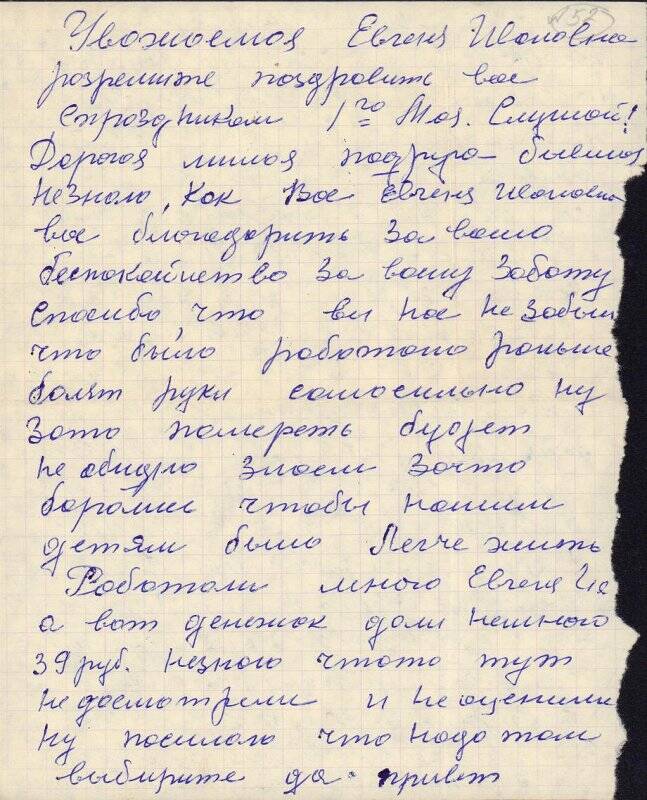 152
Уважаемая Евгеня Ивановна
розрешите поздравить вас
спраздником 1го Мая. Слушай!
Дорогая милая подруга бывшая
незнаю, как Вас Евгеня Ивановна
вас благодарить за вашо
беспокойство за вашу заботу
спасибо, что вы нас не забыли
что было работано раньше
болят руки самосильно ну
зато помереть будет
не обидно знаем зачто
боролись чтобы нашим
детям было Легче жить
Работали много Евгеня Ив
а вот денежок дали немного
39 руб. незнаю чтото тут
не досмотрели и не оценили
ну посилаю что надо там
выбирите да привет